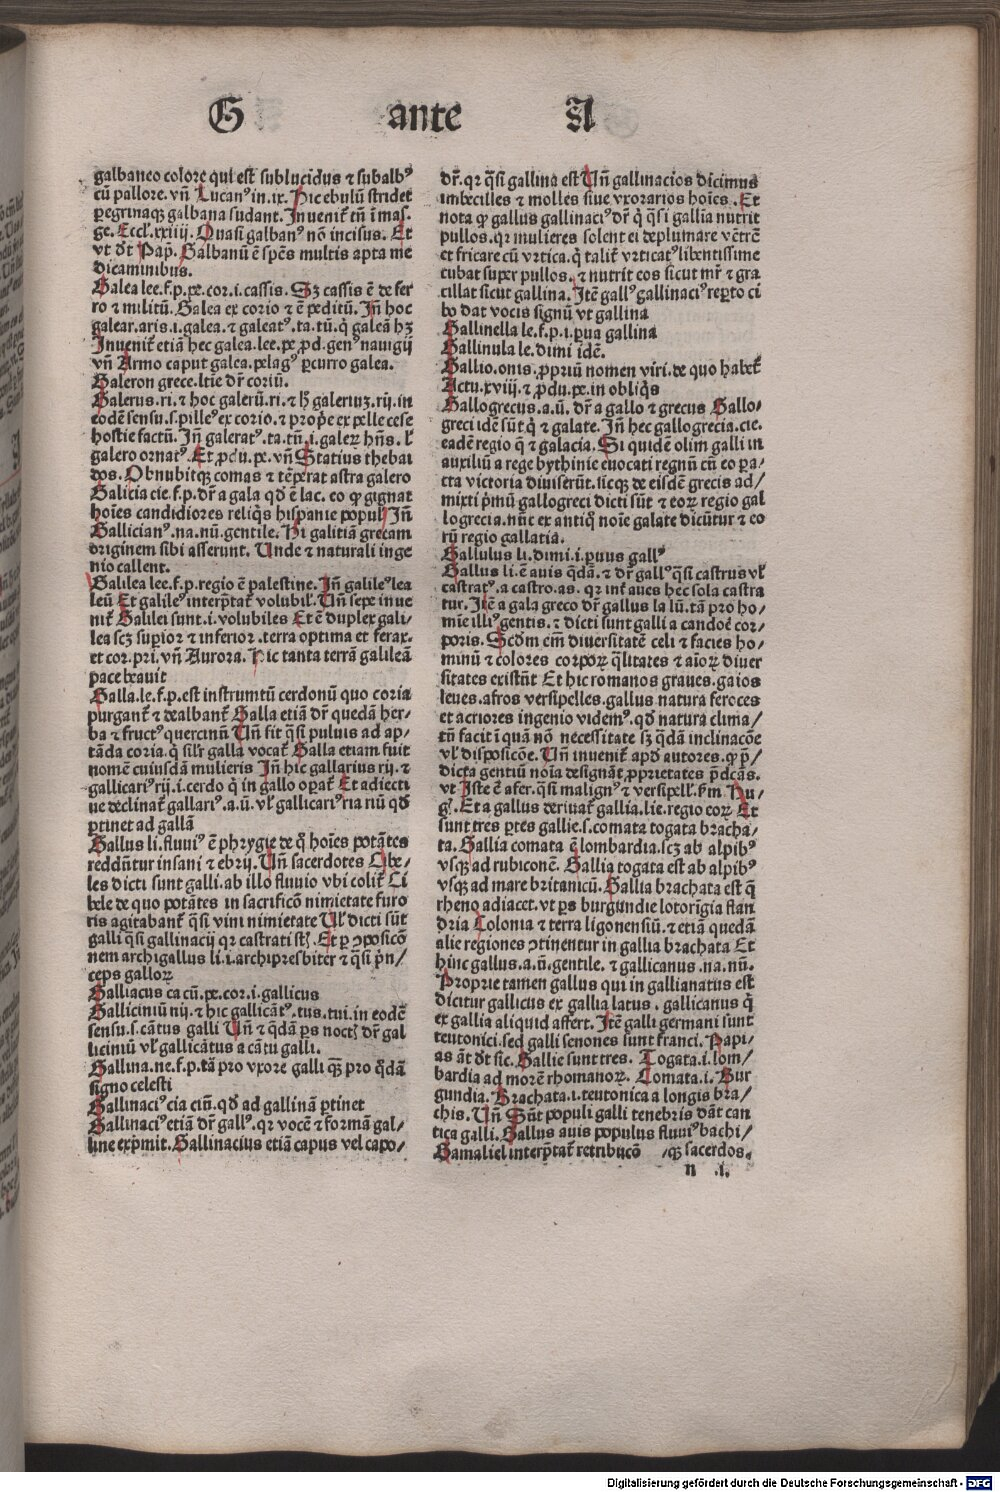 G ante A
galbaneo colore qui est sublucidus ⁊ subalbꝰ
cū pallore. vn̄ Lucanꝰ in.ix. Hic ebulū stridet
ꝑegrinaqꝫ galbana sudant. Inuenit᷑ tn̄ ī mas.
ge. Eccl̓.xxiiij. Quasi galbanꝰ nō incisus. Et
vt dt̄ Pap̄. Galbanū ē spēs multis apta me
dicaminibus.
Galea lee.f.p.pe.cor.i.cassis. Sꝫ cassis ē de fer
ro ⁊ militū. Galea ex corio ⁊ ē peditū. Jn̄ hoc
galear.aris.i.galea.⁊ galeatꝰ.ta.tū.q̇ galeā hꝫ
Inuenit᷑ etiā hec galea.lee.pe ꝓd.genꝰ nauigij
vn̄ Armo caput galea.pelagꝰ ꝑcurro galea.
Galeron grece.ltīe dr̄ coriū.
Galerus.ri.⁊ hoc galerū.ri.⁊ hͥ galeriuꝫ.rij.in
eodē sensu.s.pilleꝰ ex corio.⁊ propͥe ex pelle cese
hostie factū. Jn̄ galeratꝰ.ta.tū.i.galeꝝ hn̄s.l̓
galero ornatꝰ. Et ꝓdu.pe.vn̄ Statius thebai
dos. Obnubitqꝫ comas ⁊ tēperat astra galero
Galicia cie.f.p.dr̄ a gala qd̓ ē lac.eo ꝙ gignat
hoīes candidiores reliq̇s hispanie popul̓ Jn̄
Gallicianꝰ.na.nū.gentile. Hi galitiā grecam
originem sibi asserunt. Unde ⁊ naturali inge
nio callent.
Galilea lee.f.p.regio ē palestine. Jn̄ galileꝰ lea
leū Et galileꝰ interp̄tat᷑ volubil̓. Un̄ sepe inue
nit᷑ Galilei sunt.i.volubiles Et ē duplex gali⸗
lea scꝫ suꝑior ⁊ inferior.terra optima et ferax.
et cor.pri.vn̄ Aurora. Hic tanta terrā galileā
pace beauit
Galla.le.f.p.est instrumtū cerdonū quo coria
purgant᷑ ⁊ dealbant᷑ Galla etiā dr̄ quedā her⸗
ba ⁊ fructꝰ quercinū Un̄ fit q̄si puluis ad ap⸗
tāda coria.q̇ sil̓r galla vocat᷑ Galla etiam fuit
nomē cuiusdā mulieris Jn̄ hic gallarius rij.⁊
gallicariꝰ rij.i.cerdo q̇ in gallo oꝑat᷑ Et adiecti
ue declinat᷑ gallariꝰ.a.ū.vl̓ gallicariꝰ ria riū qd̓
ꝑtinet ad gallā
Gallus li.fluuiꝰ ē phrygie de q̊ hoīes potātes
reddūtur insani ⁊ ebrij. Un̄ sacerdotes Cibe⸗
les dicti sunt galli.ab illo fluuio vbi colit᷑ Ci
bele de quo potātes in sacrificō nimietate furo
ris agitabant᷑ q̄si vini nimietate Ul̓ dicti sūt
galli q̄si gallinacij qr castrati st̄. Et ꝑ ꝯposicō
nem archigallus li.i.archipresbiter ⁊ q̄si p̄n⸗
ceps galloꝝ
Galliacus ca cū.pe.cor.i.gallicus
Galliciniū nij.⁊ hic gallicātꝰ.tus.tui.in eodē
sensu.s.cātus galli Un̄ ⁊ q̄dā ps noctꝭ dr̄ gal
liciniū vl̓ gallicātus a cātu galli.
Gallina.ne.f.p.tā pro vxore galli qꝫ pro q̊dā
signo celesti
Gallinaciꝰ cia ciū.qd̓ ad gallinā ꝑtinet
Gallinaciꝰ etiā dr̄ gallꝰ.qr vocē ⁊ formā gal⸗
line exp̄mit. Gallinacius etiā capus vel capo⸗
dr̄.qr q̄si gallina est Un̄ gallinacios dicimus
imbecilles ⁊ molles siue vxorarios hoīes. Et
nota ꝙ gallus gallinaciꝰ dr̄ q̇ q̄si gallina nutrit
pullos.qr mulieres solent ei deplumare vētrē
et fricare cū vrtica.q̇ talit᷑ vrticatꝰ libentissime
cubat super pullos.⁊ nutrit eos sicut mr̄ ⁊ gra
cillat sicut gallina. Itē gallꝰ gallinaciꝰ reꝑto ci
bo dat vocis signū vt gallina
Gallinella le.f.p.i.ꝑua gallina
Gallinula le.dimi idē.
Gallio.onis.ꝓpriū nomen viri.de quo habet᷑
Actu.xviij.⁊ ꝓdu.pe.in obliq̇s
Gallogrecus.a.ū.dr̄ a gallo ⁊ grecus Gallo⸗
greci idē sūt q̇ ⁊ galate. Jn̄ hec gallogrecia.cie.
eadē regio q̄ ⁊ galacia. Si quidē olim galli in
auxiliū a rege bythinie euocati regnū cū eo ꝑa⸗
cta victoria diuiserūt.sicqꝫ de eisdē grecis ad⸗
mixti pͥmū gallogreci dicti sūt ⁊ eoꝝ regio gal
logrecia.nūc ex antiq̊ noīe galate dicūtur ⁊ eo
rū regio gallatia.
Gallulus li.dimi.i.ꝑuus gallꝰ
Gallus li.ē auis q̄dā.⁊ dr̄ gallꝰ q̄si castrus vl̓
castratꝰ.a castro.as.qr int᷑ aues hec sola castra
tur. Itē a gala greco dr̄ gallus la lū.tā pro ho⸗
mīe illiꝰ gentis.⁊ dicti sunt galli a candoē cor⸗
poris. Scd̓m em̄ diuersitatē celi ⁊ facies ho⸗
minū ⁊ colores corpoꝝ q̄litates ⁊ aīoꝝ diuer
sitates existūt Et hic romanos graues.gaios
leues.afros versipelles.gallus natura feroces
et acriores ingenio videmꝰ.qd̓ natura clima⸗
tū facit īquā nō necessitate sꝫ q̄dā inclinacōe
vl̓ disposicōe. Un̄ inuenit᷑ apd̓ autores.ꝙ p̄⸗
dicta gentiū noīa designāt ꝓprietates p̄dcās.
vt Iste ē afer.q̄si malignꝰ ⁊ versipell̓.ẜm Hu⸗
gꝭ. Et a gallus deriuat᷑ gallia.lie.regio eoꝝ Et
sunt tres ꝑtes gallie.s.comata togata bracha⸗
ta. Gallia comata ē lombardia.scꝫ ab alpibꝰ
vsqꝫ ad rubiconē. Gallia togata est ab alpibꝰ
vsqꝫ ad mare britanicū. Gallia brachata est q̄
rheno adiacet.vt ps burgundie lotorīgia flan
dria Colonia ⁊ terra ligonensiū.⁊ etiā quedā
alie regiones ꝯtinentur in gallia brachata Et
hinc gallus.a.ū.gentile.⁊ gallicanus.na.nū.
Proprie tamen gallus qui in gallia natus est
dicitur gallicus ex gallia latus.gallicanus q̇
ex gallia aliquid affert. Itē galli germani sunt
teutonici.sed galli senones sunt franci. Papi⸗
as āt dt̄ sic. Gallie sunt tres. Togata.i.lom⸗
bardia ad morē rhomanoꝝ. Comata.i.Bur
gundia. Brachata.i.teutonica a longis bra⸗
chis. Un̄ Sūt populi galli tenebris dāt can
tica galli. Gallus auis populus fluuiꝰ bachi⸗
Gamaliel interp̄tat᷑ retribucō ⸗qꝫ sacerdos.
n .i.
Digitalisierung gefördert durch die Deutsche Forschungsgemeinschaft - DFG